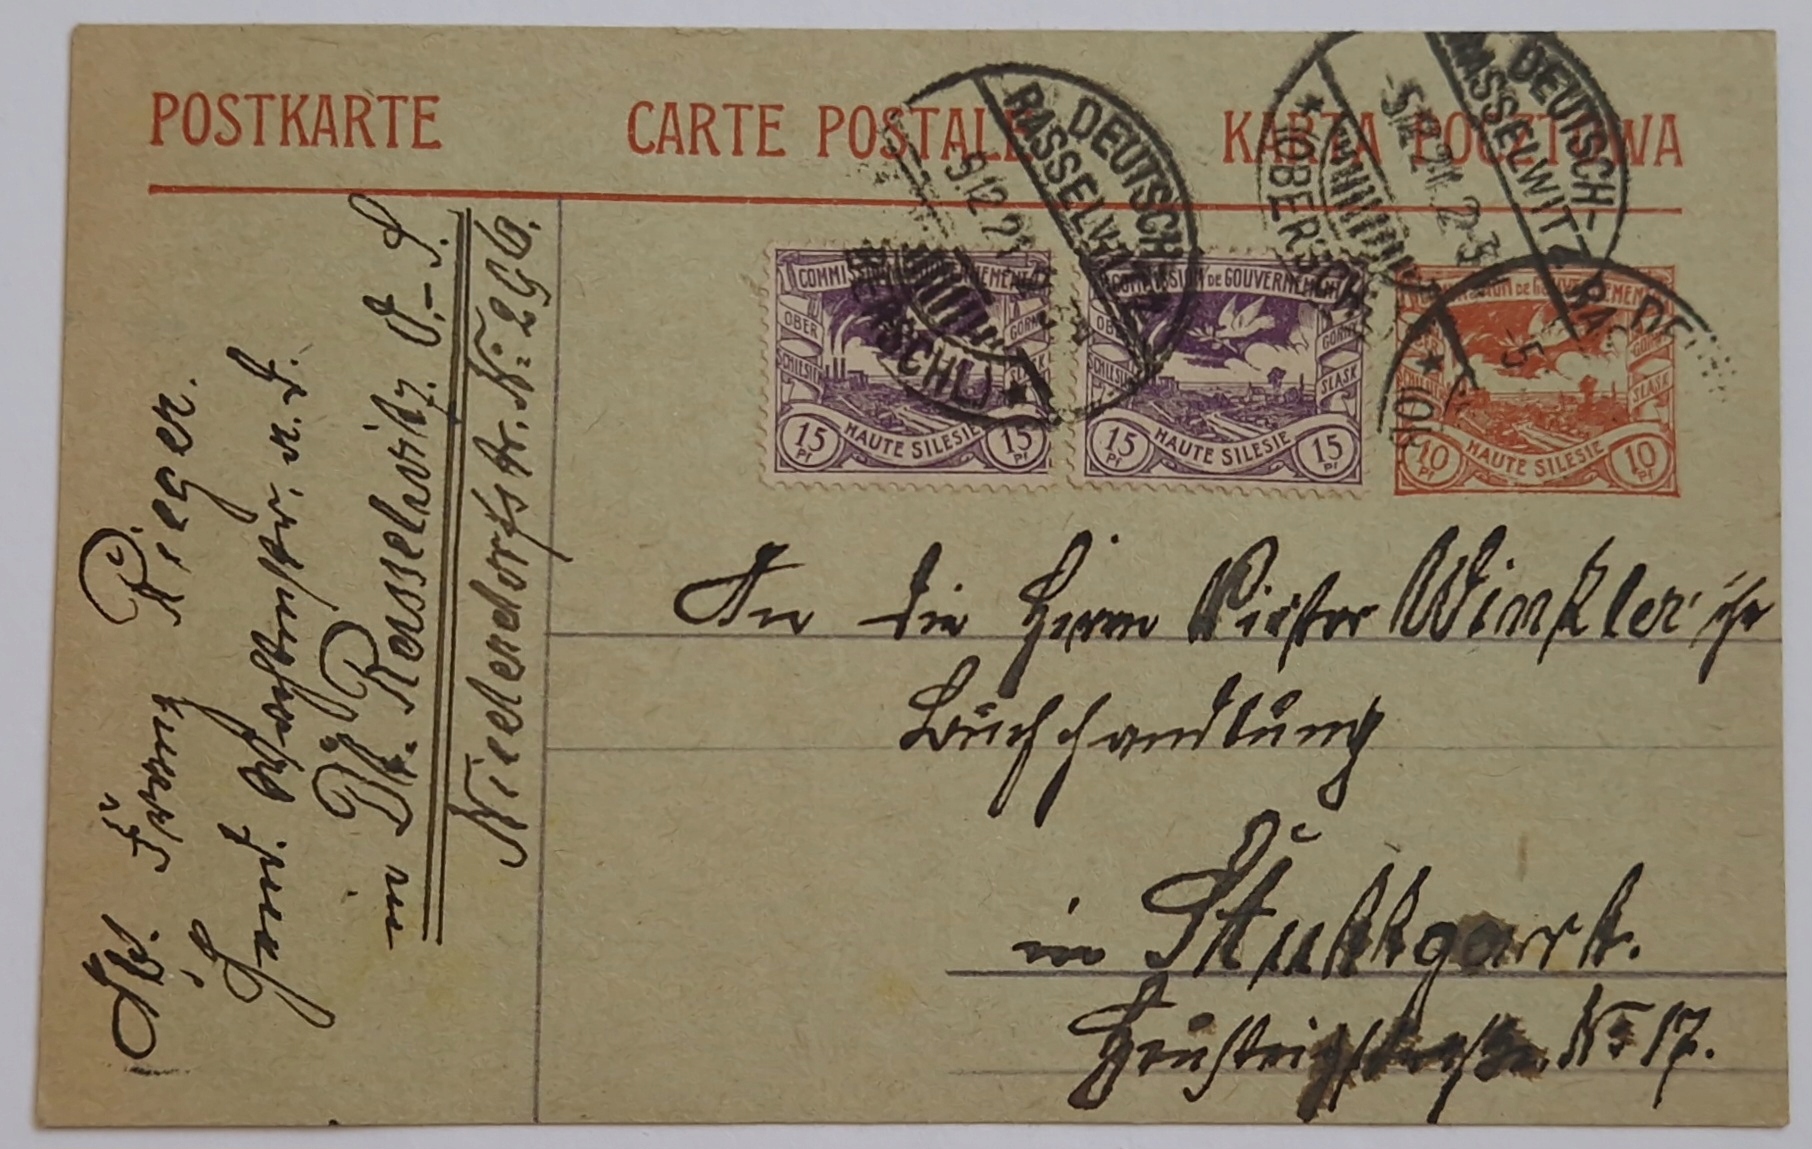 POSTKARTE CARTE POSTALE KARTA POCZTOWA
DEUTSCH-RASSELWITZ
(OBERSCHL.)
-9.12.21.
DEUTSCH-RASSELWITZ
(OBERSCHL
-5.12.21. 2-3
COMMISSION DE GOUVERNEMENT
OBER SCHLESIEN GORNY SLASK
HAUTE SILESIE
15 Pf 15 Pf
COMMISSION DE GOUVERNEMENT
OBER SCHLESIEN GORNY SLASK
HAUTE SILESIE
15 Pf 15 Pf
COMMISSION DE GOUVERNEMENT
OBER SCHLESIEN GORNY SLASK
HAUTE SILESIE
10 Pf 10 Pf
Franz Rieger.
in Dt. Rasselwitz. O.-S.
Niederdorfstr. No: 296.
An die Herrn Winkler'sche
Buchhandlung
in Stuttgart.
No 17.